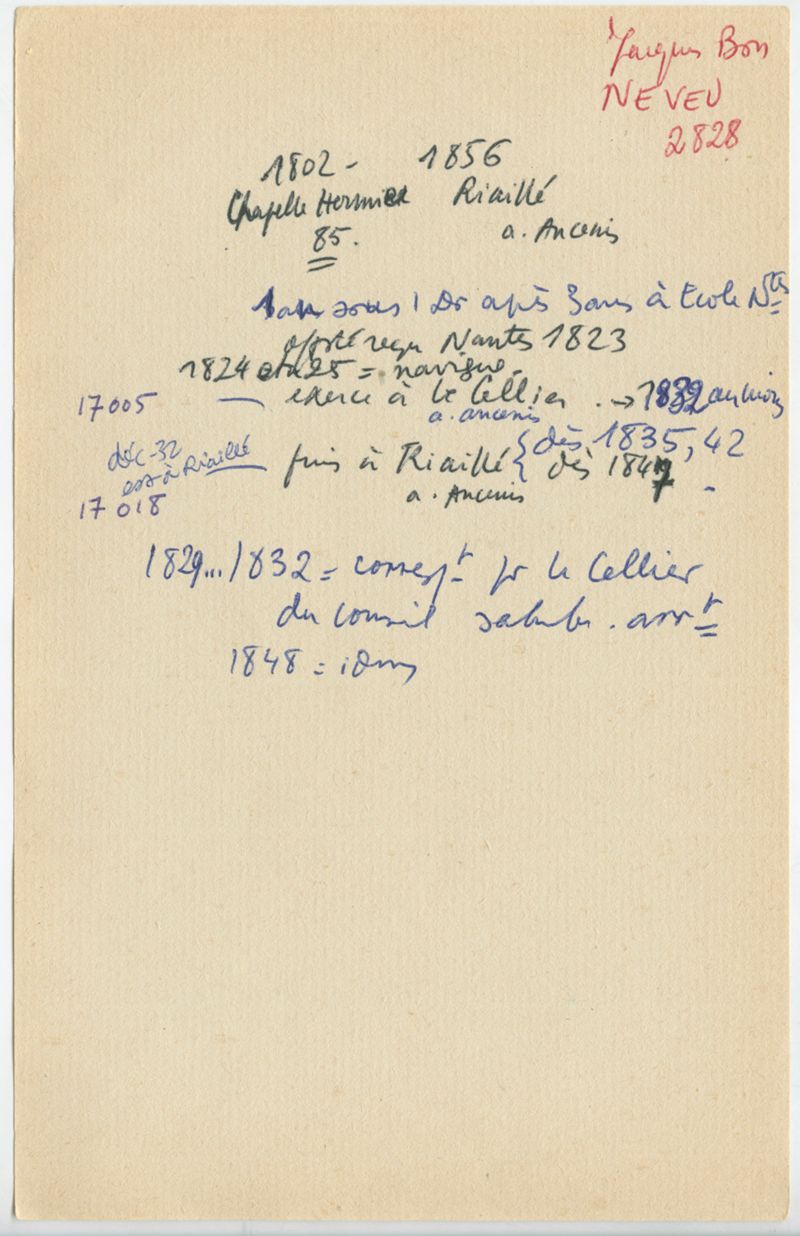 Jacques Bon
NEVEU
2828
1802 - 1856
Chapelle Hermier Riaillé
85. a. Ancenis
1 an sous 1 Dr après 3 ans à Ecole Ntes
reçu Nantes 1823
1824 et 25 = navigue -
17005 — exerce à Le Cellier . → 1832 au moins
a. ancenis
déc-32
est à Riaillé
puis à Riaillé { dès 1835, 42
dès 1847 -
17018 a. Ancenis
1829... 1832 = correspt pr le Cellier
du Conseil salub. arrt
1848 = idem